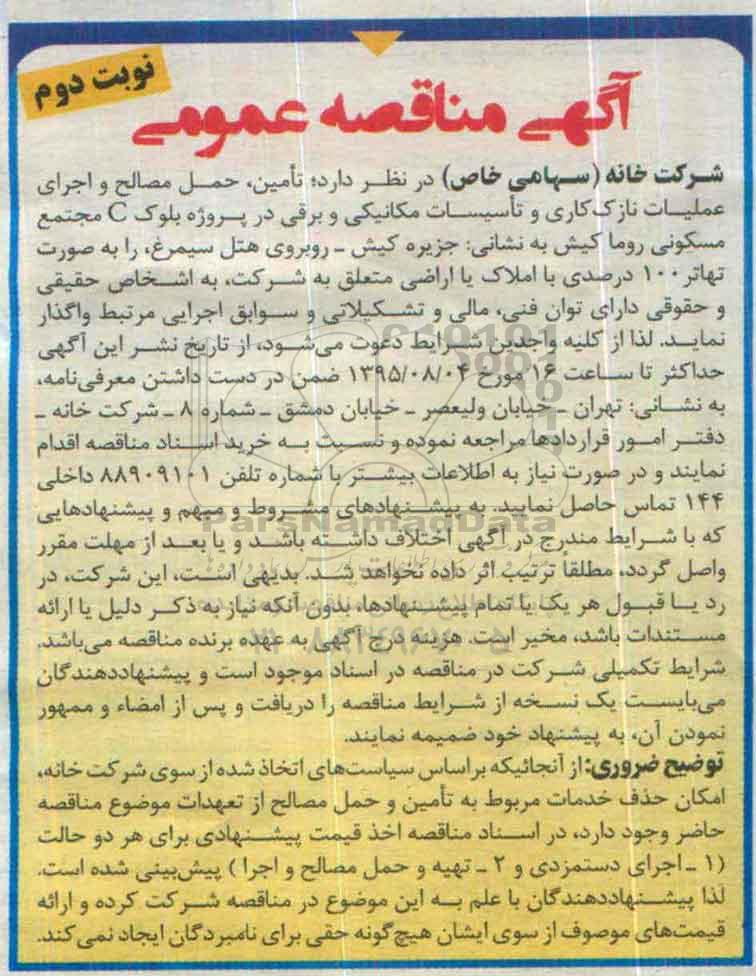 نوبت دوم
آگهی مناقصه عمومی
شرکت خانه (سهامی خاص) در نظر دارد؛ تأمین، حمل مصالح و اجرای
عملیات نازک‌کاری و تأسیسات مکانیکی و برقی در پروژه بلوک C مجتمع
مسکونی روما کیش به نشانی: جزیره کیش ـ روبروی هتل سیمرغ، را به صورت
تهاتر ۱۰۰ درصدی با املاک یا اراضی متعلق به شرکت، به اشخاص حقیقی
و حقوقی دارای توان فنی، مالی و تشکیلاتی و سوابق اجرایی مرتبط واگذار
نماید. لذا از کلیه واجدین شرایط دعوت می‌شود، از تاریخ نشر این آگهی
حداکثر تا ساعت ۱۶ مورخ ۱۳۹۵/۰۸/۰۴ ضمن در دست داشتن معرفی‌نامه،
به نشانی: تهران ـ خیابان ولیعصر ـ خیابان دمشق ـ شماره ۸ ـ شرکت خانه ـ
دفتر امور قراردادها مراجعه نموده و نسبت به خرید اسناد مناقصه اقدام
نمایند و در صورت نیاز به اطلاعات بیشتر با شماره تلفن ۸۸۹۰۹۱۰۱ داخلی
۱۴۴ تماس حاصل نمایید. به پیشنهادهای مشروط و مبهم و پیشنهادهایی
که با شرایط مندرج در آگهی اختلاف داشته باشد و یا بعد از مهلت مقرر
واصل گردد، مطلقاً ترتیب اثر داده نخواهد شد. بدیهی است، این شرکت، در
رد یا قبول هر یک یا تمام پیشنهادها، بدون آنکه نیاز به ذکر دلیل یا ارائه
مستندات باشد، مخیر است. هزینه درج آگهی به عهده برنده مناقصه می‌باشد.
شرایط تکمیلی شرکت در مناقصه در اسناد موجود است و پیشنهاددهندگان
می‌بایست یک نسخه از شرایط مناقصه را دریافت و پس از امضاء و ممهور
نمودن آن، به پیشنهاد خود ضمیمه نمایند.
توضیح ضروری: از آنجائیکه براساس سیاست‌های اتخاذ شده از سوی شرکت خانه،
امکان حذف خدمات مربوط به تأمین و حمل مصالح از تعهدات موضوع مناقصه
حاضر وجود دارد، در اسناد مناقصه اخذ قیمت پیشنهادی برای هر دو حالت
(۱ ـ اجرای دستمزدی و ۲ ـ تهیه و حمل مصالح و اجرا) پیش‌بینی شده است.
لذا پیشنهاددهندگان با علم به این موضوع در مناقصه شرکت کرده و ارائه
قیمت‌های موصوف از سوی ایشان هیچ‌گونه حقی برای نامبردگان ایجاد نمی‌کند.
ParsNamadData